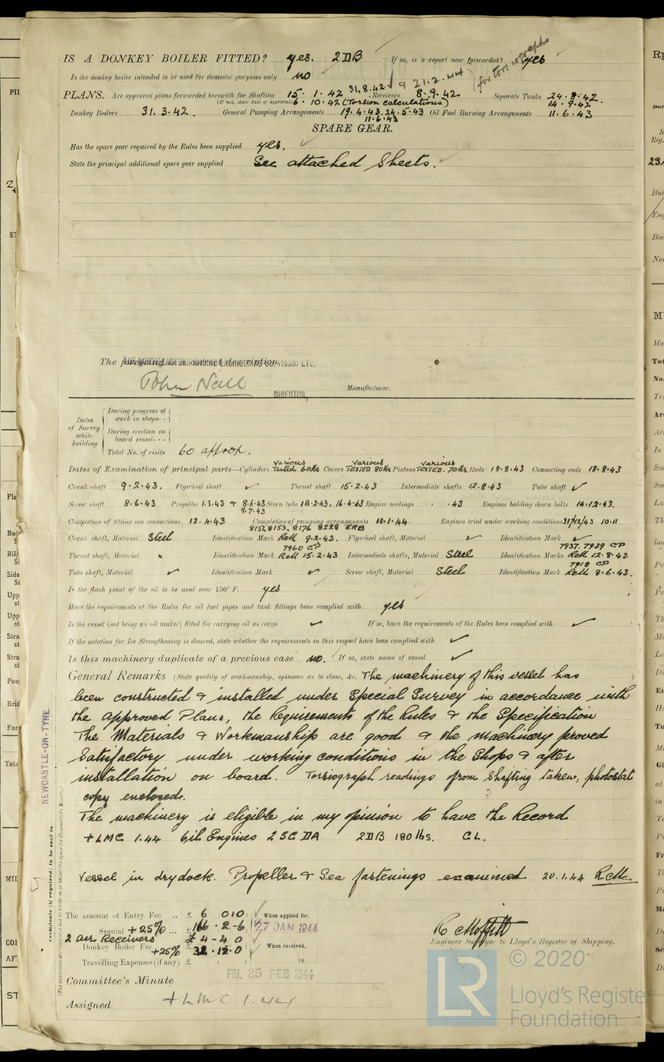 IS A DONKEY BOILER FITTED? yes. 2DB If so, is a report now forwarded? yes
Is the donkey boiler intended to be used for domestic purposes only no
31.8.42 & 21.2.44 for torsiographs
PLANS. Are approved plans forwarded herewith for Shafting 15.1.42 Receivers 8.9.42 Separate Tanks 24.8.42.
(If not, state date of approval) 6.10.42 (Torsion calculations) 14.9.42.
Donkey Boilers 31.3.42. General Pumping Arrangements 19.4.43. 24.5.43 Oil Fuel Burning Arrangements 11.6.43
11.6.43
SPARE GEAR.
Has the spare gear required by the Rules been supplied yes.
State the principal additional spare gear supplied See attached Sheets.
The foregoing is a correct description,
John Neill
DIRECTOR, Manufacturer.
Dates of Survey while building
During progress of work in shops - -
During erection on board vessel - - -
Total No. of visits 60 approx.
Dates of Examination of principal parts—Cylinders various Tested 60lbs Covers various TESTED 80lbs Pistons various TESTED. 70lbs. Rods 18.8.43 Connecting rods 18.8.43
Crank shaft 9.2.43. Flywheel shaft ✓ Thrust shaft 15.2.43 Intermediate shafts 12.8.43 Tube shaft ✓
Screw shaft 8.6.43 Propeller 1.1.43 & 8.1.43 Stern tube 18.2.43. 16.4.43 Engine seatings .43 Engines holding down bolts 14.12.43.
9.7.43
Completion of fitting sea connections 12.4.43 Completion of pumping arrangements 11.1.44 Engines tried under working conditions 31/12/43 10.11
8152, 8153, 8176 8228 ERB
Crank shaft, Material Steel Identification Mark RCM 9.2.43. Flywheel shaft, Material ✓ Identification Mark ✓
7960 CP 7937. 7939 CP
Thrust shaft, Material " Identification Mark RCM 15.2.43 Intermediate shafts, Material Steel Identification Marks RCM 12.8.43
7918 CP
Tube shaft, Material ✓ Identification Mark ✓ Screw shaft, Material Steel Identification Mark RCM 8.6.43.
Is the flash point of the oil to be used over 150° F. yes
Have the requirements of the Rules for oil fuel pipes and tank fittings been complied with yes
Is the vessel (not being an oil tanker) fitted for carrying oil as cargo ✓ If so, have the requirements of the Rules been complied with ✓
If the notation for Ice Strengthening is desired, state whether the requirements in this respect have been complied with ✓
Is this machinery duplicate of a previous case no. If so, state name of vessel ✓
General Remarks (State quality of workmanship, opinions as to class, &c. The machinery of this vessel has
been constructed & installed under Special Survey in accordance with
the approved Plans, the Requirements of the Rules & the Specification
The Materials & Workmanship are good & the machinery proved
Satisfactory under working conditions in the Shops & after
installation on board. Torsiograph readings from Shafting taken, photostat
copy enclosed.
The machinery is eligible in my opinion to have the Record
+LMC 1.44 Oil Engines 2SCDA 2DB 180 lbs. CL.
Vessel in drydock. Propeller & Sea fastenings examined 20.1.44 RCM
NEWCASTLE-ON-TYNE
The amount of Entry Fee .. £ 6 0 0 When applied for,
Special +25% ... 166 . 2 - 6 27 JAN 1944
2 air Receivers £ 4 - 4 . 0
Donkey Boiler Fee +25% £ 32 . 12 . 0 When received,
Travelling Expenses (if any) £ 19
R C Moffitt
Engineer Surveyor to Lloyd's Register of Shipping.
Committee's Minute FRI. 25 FEB 1944
Assigned + LMC 1.44
LR © 2020
Lloyd's Register
Foundation